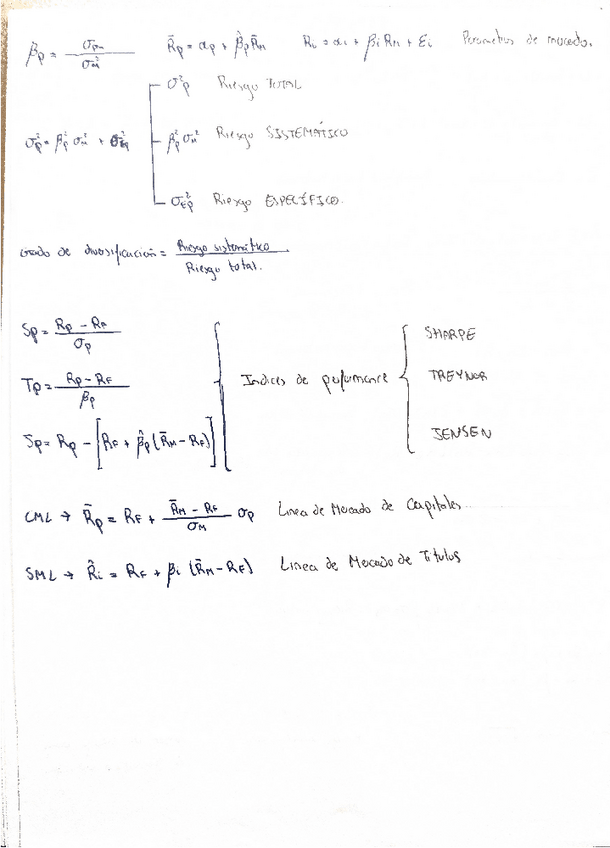 β̂p = σpm / σM²   R̄p = αp + β̂p R̄M   Ri = αi + βi RM + Ei   Parametros de mercado.
σ²p Riesgo TOTAL
σp² = βp² σM² + σ²Ep   βp² σM² Riesgo SISTEMÁTICO
σEp² Riesgo ESPECÍFICO.
Grado de diversificación = Riesgo sistemático / Riesgo total.
Sp = Rp - RF / σp   SHARPE
Tp = Rp - RF / βp   Indices de perfomance   TREYNOR
Jp = Rp - [RF + β̂p (R̄M - RF)]   JENSEN
CML → R̄p = RF + R̄M - RF / σM σp   Linea de Mercado de Capitales
SML → R̂i = RF + βi (R̄M - RF)   Linea de Mercado de Titulos